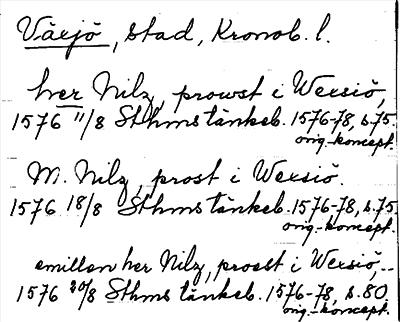 Växjö, stad, Kronob. l.
her Nilz, prowst i Wexsiö,
1576 11/8 Sthms tänkeb. 1576-78, s. 75.
orig.-koncept.
M. Nilz, prost i Wexsiö.
1576 18/8 Sthms tänkeb. 1576-78, s. 75.
orig.-koncept.
emillan her Nilz, proest i Wexsiö, ..
1576 20/8 Sthms tänkeb. 1576-78, s. 80
orig.-koncept.